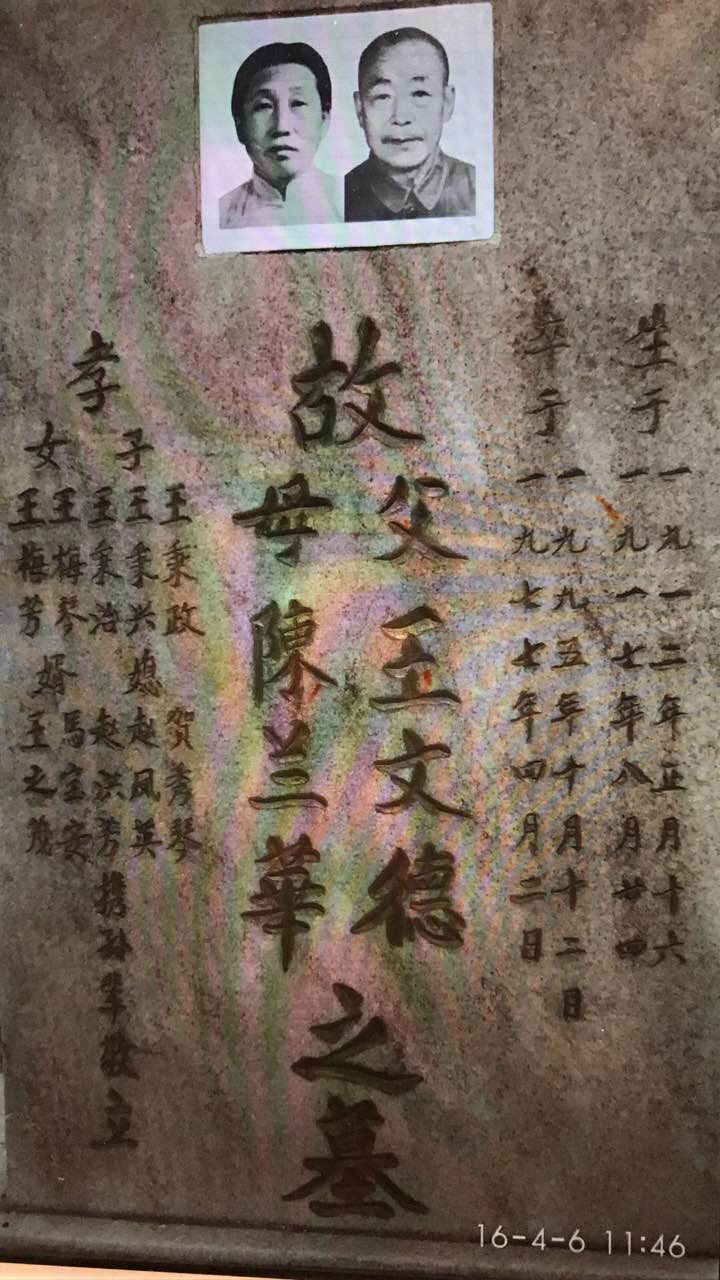 生于
一九一二年正月十六
一九一七年八月廿四
卒于
一九九五年十月十二日
一九七七年四月二日
故
父王文德
母陳兰華
之墓
孝
子
王秉政
王秉兴
王秉治
媳
贺秀琴
赵凤英
赵洪芳
女
王梅琴
王梅芳
婿
馬宝安
王之茂
携孙辈敬立
16-4-6 11:46